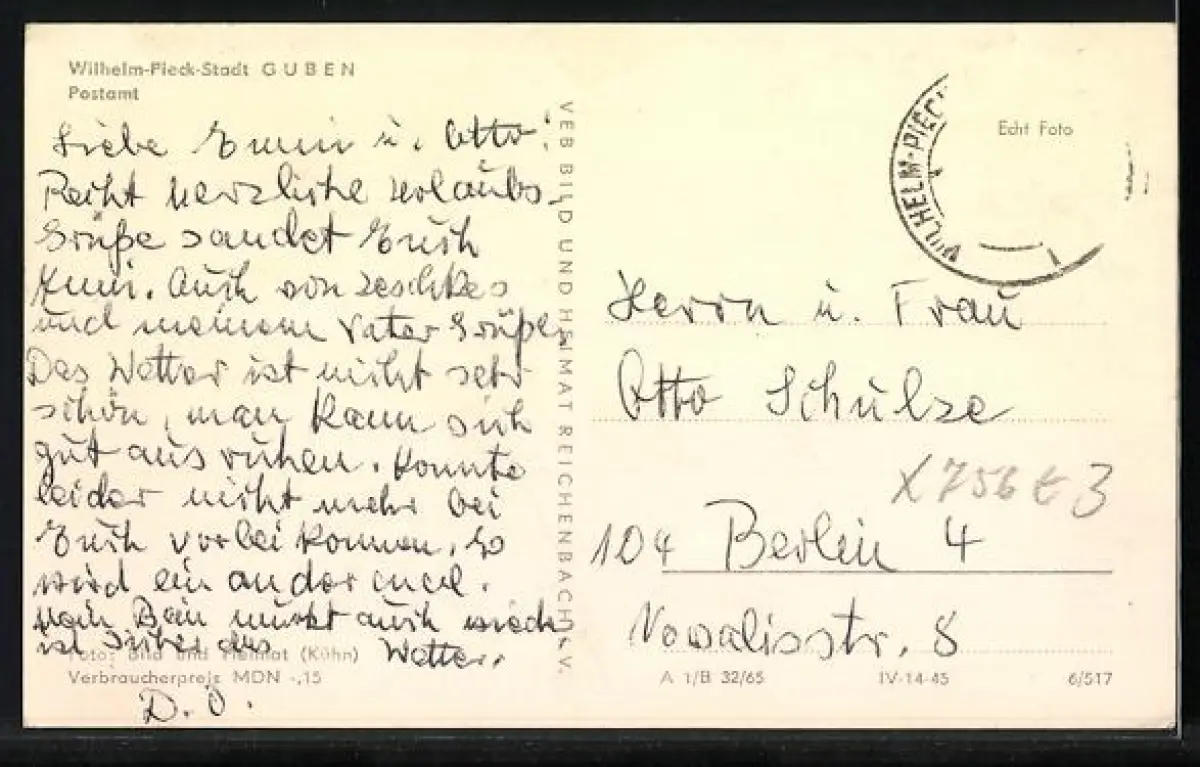 Wilhelm-Pieck-Stadt GUBEN
Postamt
Liebe Emmi u. Otto!
Recht herzliche Urlaubs-
Grüße sendet Euch
Auch von
und meinem Vater Grüße.
Das Wetter ist nicht sehr
schön, man kann sich
gut ausruhen. Konnte
leider nicht mehr bei
Euch vorbei kommen. So
wird ein ander mal.
Mein Bein muckt auch wieder
ist sicher das Wetter.
D. O.
Foto: Bild und Heimat (Kühn)
Verbraucherpreis MDN -,15
VEB BILD UND HEIMAT REICHENBACH i. V.
Echt Foto
WILHELM-PIECK
Herrn u. Frau
Otto Schulze
X 756 E 3
104 Berlin 4
Novalisstr. 8
A 1/B 32/65
IV-14-45
6/517